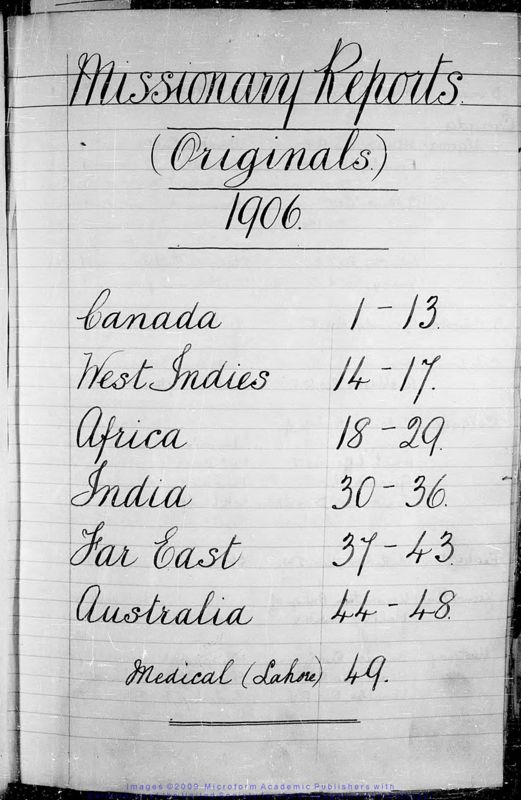 Missionary Reports.
(Originals.)
1906.
Canada 1 - 13.
West Indies 14 - 17.
Africa 18 - 29.
India 30 - 36.
Far East 37 - 43.
Australia 44 - 48.
Medical (Lahore) 49.
Images ©2009 Microform Academic Publishers with